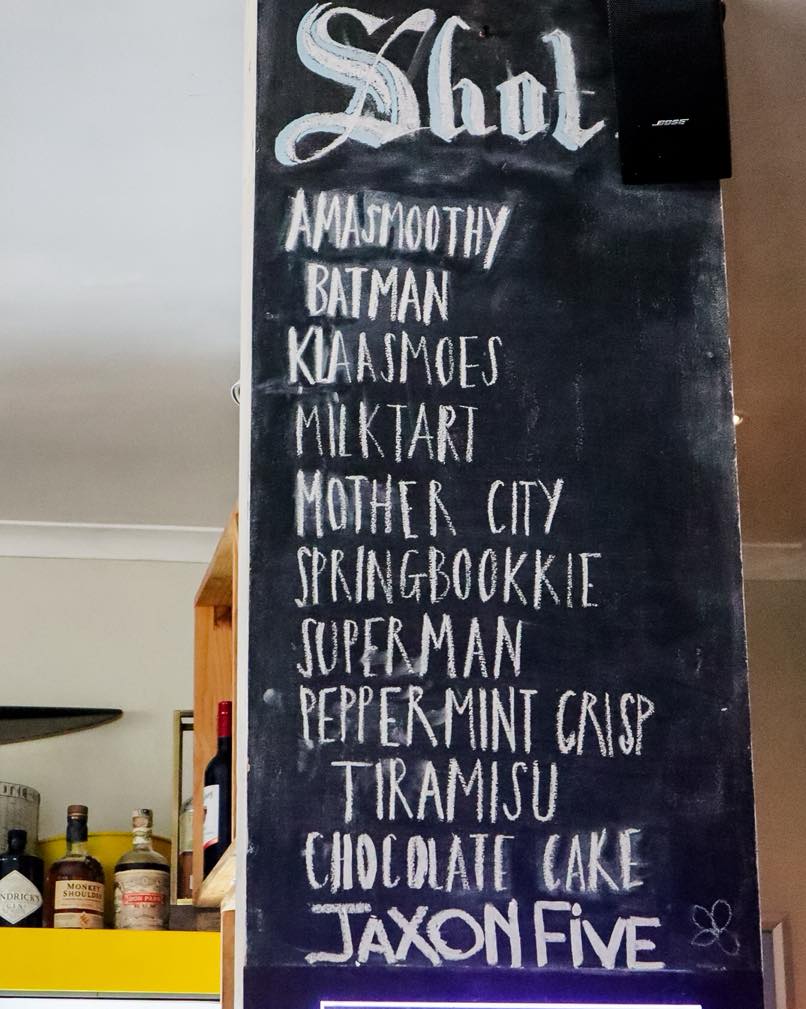 Shot
BOSE
AMASMOOTHY
BATMAN
KLAASMOES
MILKTART
MOTHER CITY
SPRINGBOOKKIE
SUPERMAN
PEPPERMINT CRISP
TIRAMISU
CHOCOLATE CAKE
JAXON FIVE
NDRICK'S
GIN
MONKEY
SHOULDER
DON PAPA
RUM